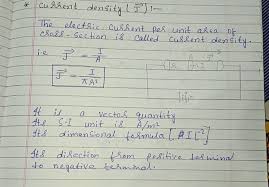 * Current density (J⃗) :—
The electric current per unit area of
cross-section is called current density.
i.e J⃗ = I/A
J⃗ = I/πA²
It is a vector quantity
Its S.I unit is A/m²
Its dimensional formula [AL⁻²]
Its direction from positive terminal
to negative terminal.